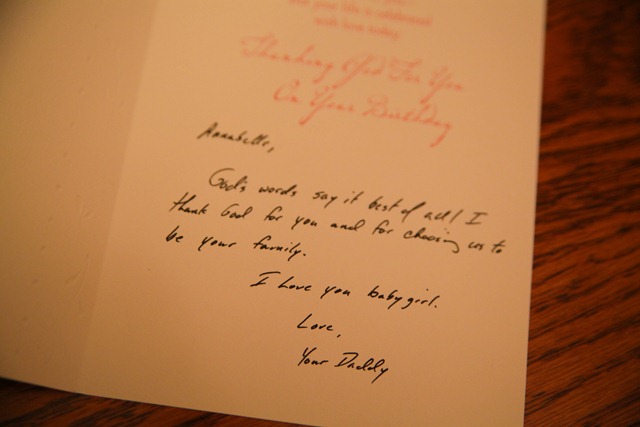 and your life is celebrated
with love today.
Thanking God For You
On Your Birthday
Annabelle,
God's words say it best of all! I
thank God for you and for choosing us to
be your family.
I Love you baby girl.
Love,
Your Daddy